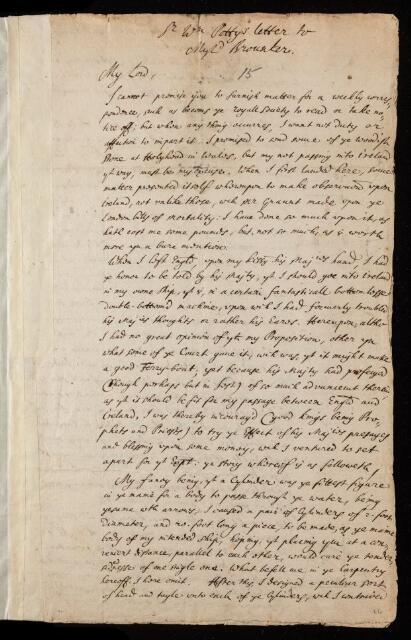 Sr Wm Pettys letter to
My Ld Brounker.
15
My Lord,
I cannot promise you to furnish matter for a weekly corres
pondence, such as becoms ye royall Society to read or take no
tice off; but when any thing occurres, I want not duty or
affection to impart it. I promised to send some of ye
stone at Holyhead in Wales, but my not passing into Ireland
yt way, must be my excuse. When I first landed here, some
matter presented itself whereupon to make observations upon
Ireland, not unlike those, wch Mr Graunt made upon ye
London bills of mortality: I have done so much upon it, as
hath cost me some pounds, but, not so much, as is worth
more yn a bare mention.
When I left Engld, upon my kissg his Maj:ties hand, I had
ye honor to be told by his Majty, yt I should goe into Ireland
in my owne ship, yt is, in a certain fantasticall
double-bottomd machine, upon wch I had formerly troubled
his Maj:ties thoughts or rather his Eares. Hereupon, altho
I had no great opinion of yt my Proposition, other yn
what some of ye Court gave it, wch was, yt it might make
a good Ferry-boat; yet because his Majty had
(though perhaps but in jest) of so much advancement therein
as yt it should be fit for my passage between Engld and
Ireland, I was thereby incouragd (good kings being Pro
phets and Priests) to try ye effect of his Maj:ties presages
and blessing upon some money, wch I ventured to set
apart for yt Expt: ye story whereof is as followeth.
My fancy being, yt a Cylinder was ye fittest figure
in ye maine for a body to passe through ye water, being
ye same wth arrows, I caused a pair of Cylinders of 2: foot
diameter, and 20. foot long a piece, to be made, as ye maine
body of my intended ship, hoping, yt placing ym at a con
venient distance, parallel to each other, would cure ye tender
sidednesse of one single one. What befell me in ye Carpentry
hereoff, I here omit. After this I designed a peculiar sort
of head and tayle unto each of ye Cylinders, wch I contrived